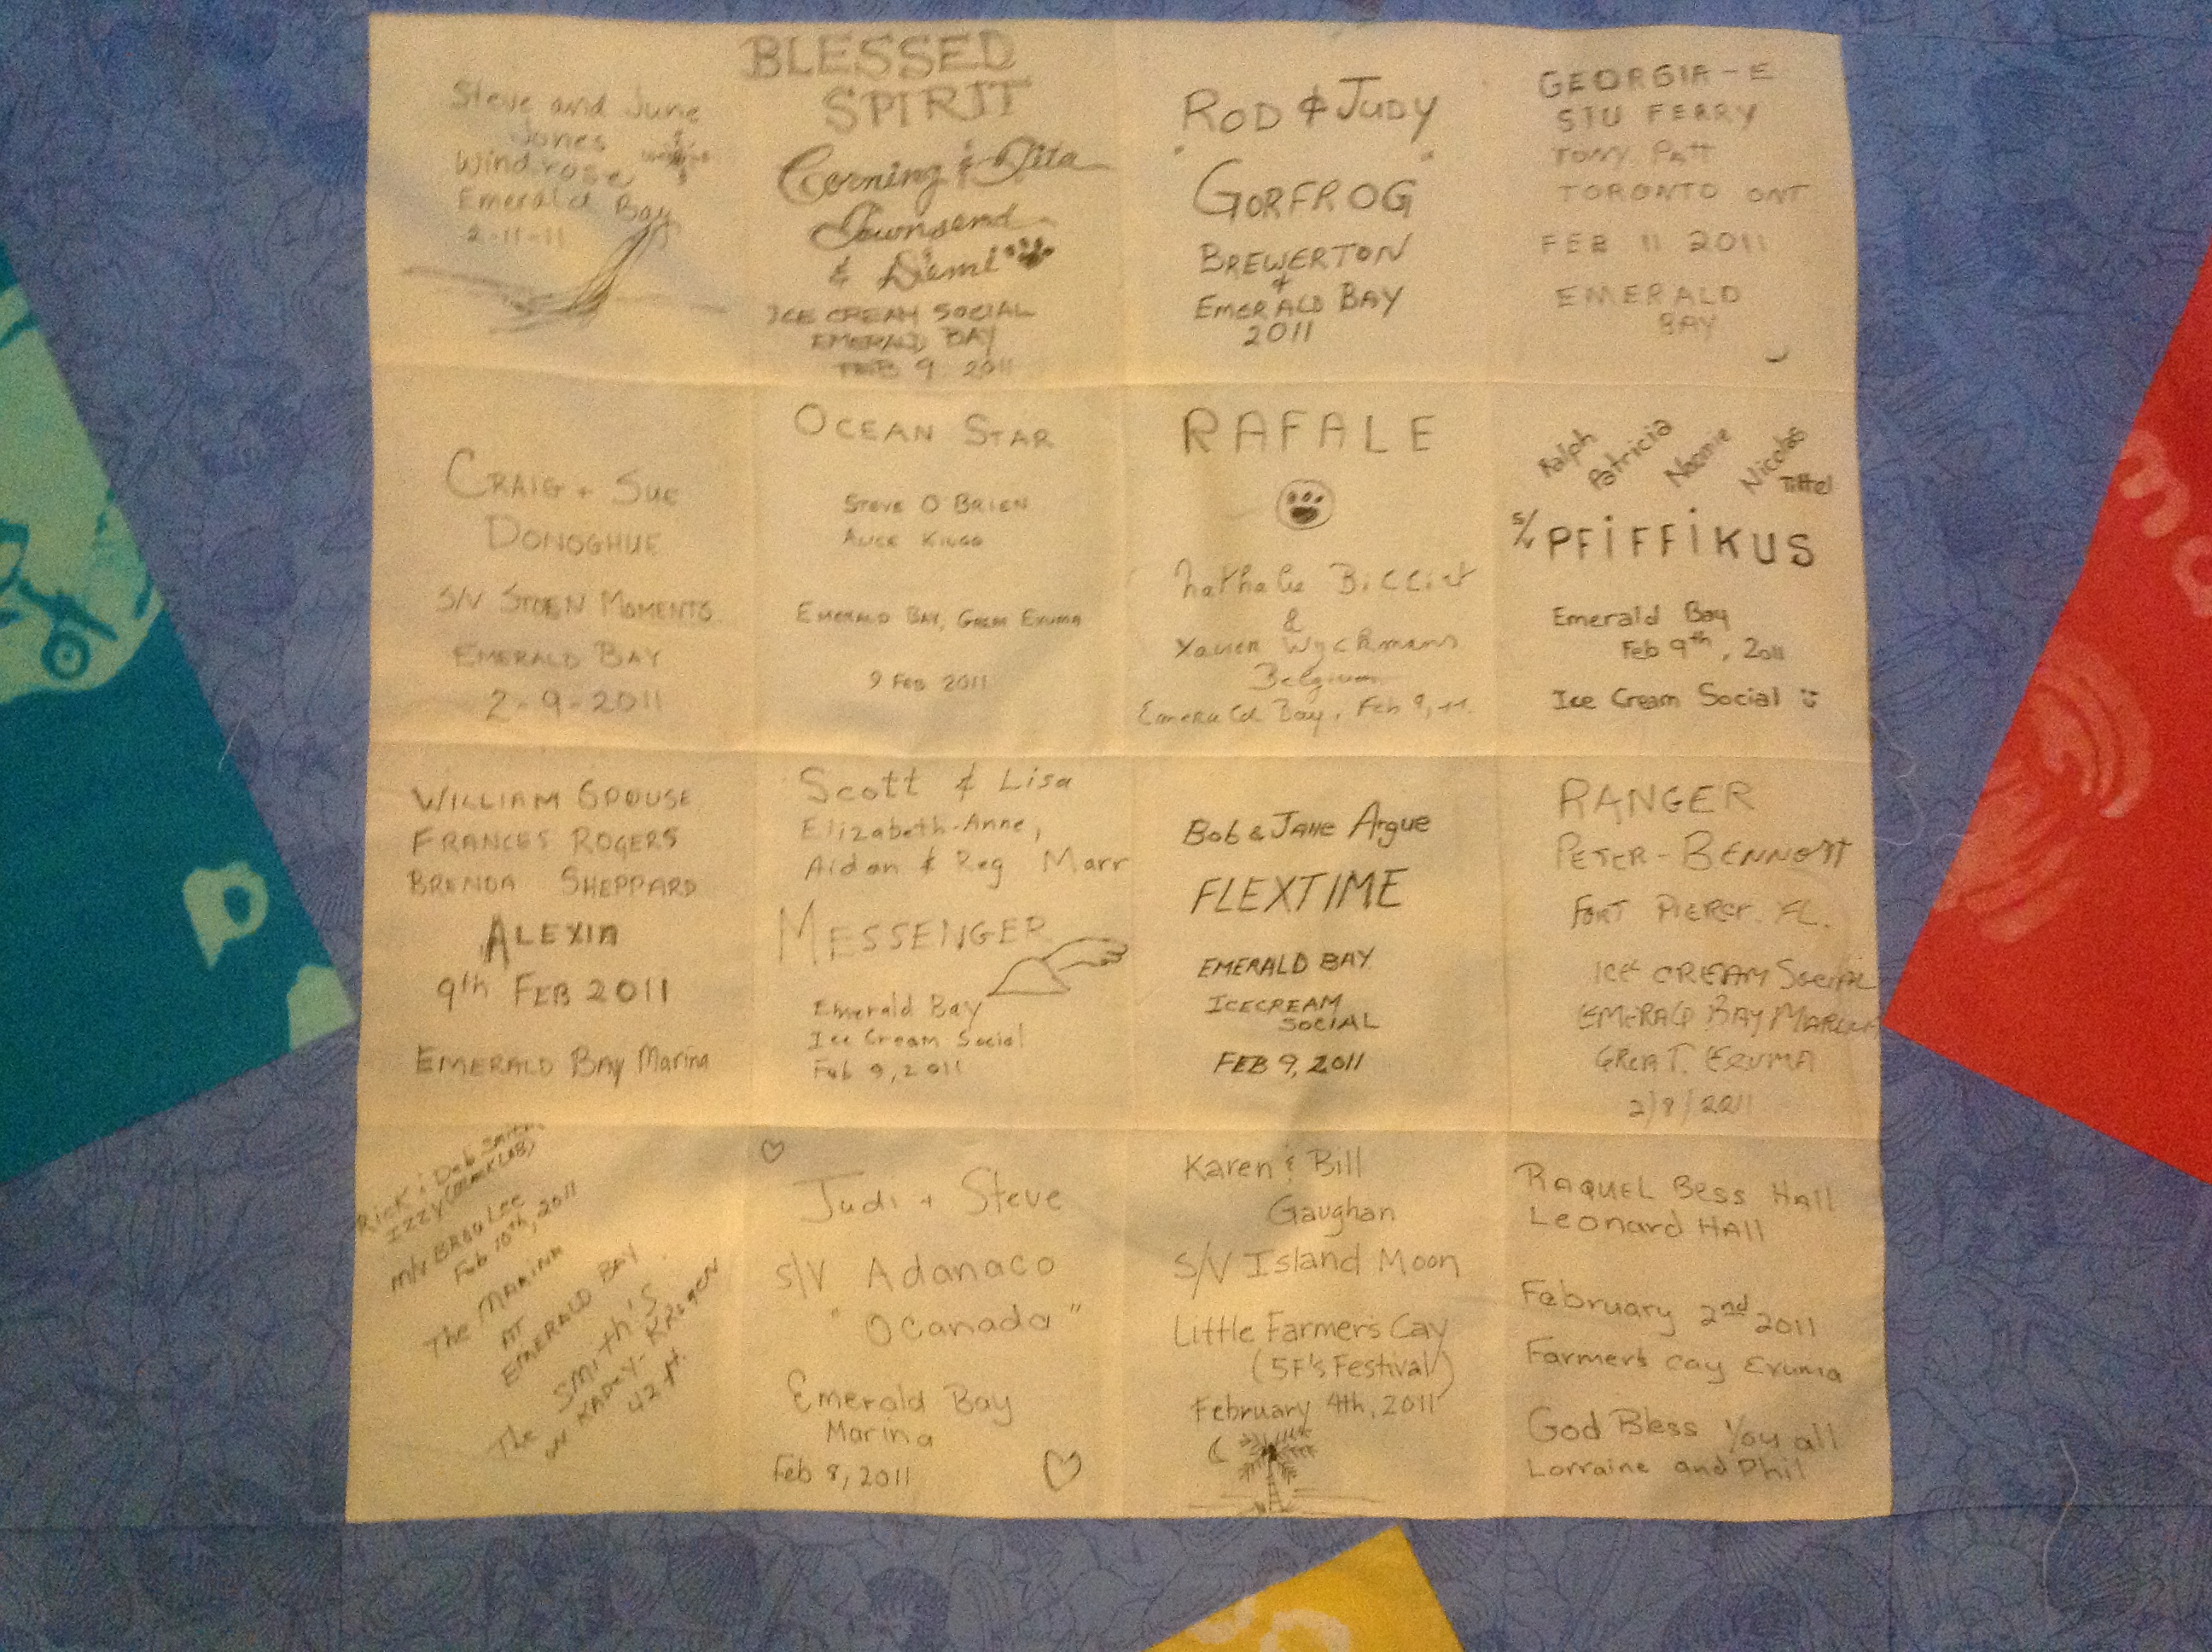 Steve and June
Jones
Windrose
Emerald Bay
2-11-11
BLESSED
SPIRIT
Corning & Dita
Townsend
&
ICE CREAM SOCIAL
EMERALD BAY
FEB 9 2011
ROD & JUDY
"GORFROG"
BREWERTON
&
EMERALD BAY
2011
GEORGIA-E
STU FERRY
TONY PATT
TORONTO ONT
FEB 11 2011
EMERALD
BAY
CRAIG + SUE
DONOGHUE
S/V STOLEN MOMENTS
EMERALD BAY
2-9-2011
OCEAN STAR
STEVE O BRIEN
EMERALD BAY, GREAT EXUMA
9 FEB 2011
RAFALE
Nathalie Billiet
&
Xavier Wyckmans
Belgium
Emerald Bay, Feb 9, 11
Ralph
Patricia
Noemie
Nicolas
Tittel
S/V PFiFFiKUS
Emerald Bay
Feb 9th, 2011
Ice Cream Social
WILLIAM GROUSE
FRANCES ROGERS
BRENDA SHEPPARD
ALEXIA
9th FEB 2011
EMERALD BAY Marina
Scott & Lisa
Elizabeth-Anne,
Aidan & Reg Marr
MESSENGER
Emerald Bay
Ice Cream Social
Feb 9, 2011
Bob & Jane Argue
FLEXTIME
EMERALD BAY
ICECREAM
SOCIAL
FEB 9, 2011
RANGER
PETER-BENNETT
FORT PIERCE FL.
ICE CREAM SOCIAL
EMERALD BAY MARINA
GREAT EXUMA
2/8/2011
Rick & Deb Smith
IZZY (BLACK LAB)
M/V BROU LEE
Feb 10th, 2011
The MARINA
AT
EMERALD BAY
The SMITH'S
ON KADEY-KROGEN
42 ft.
Judi + Steve
S/V Adanaco
"OCanada"
Emerald Bay
Marina
Feb 8, 2011
Karen & Bill
Gaughan
S/V Island Moon
Little Farmer's Cay
(5F's Festival)
February 4th, 2011
RAQUEL Bess HALL
Leonard HALL
February 2nd 2011
Farmer's cay Exuma
God Bless You all
Lorraine and Phil